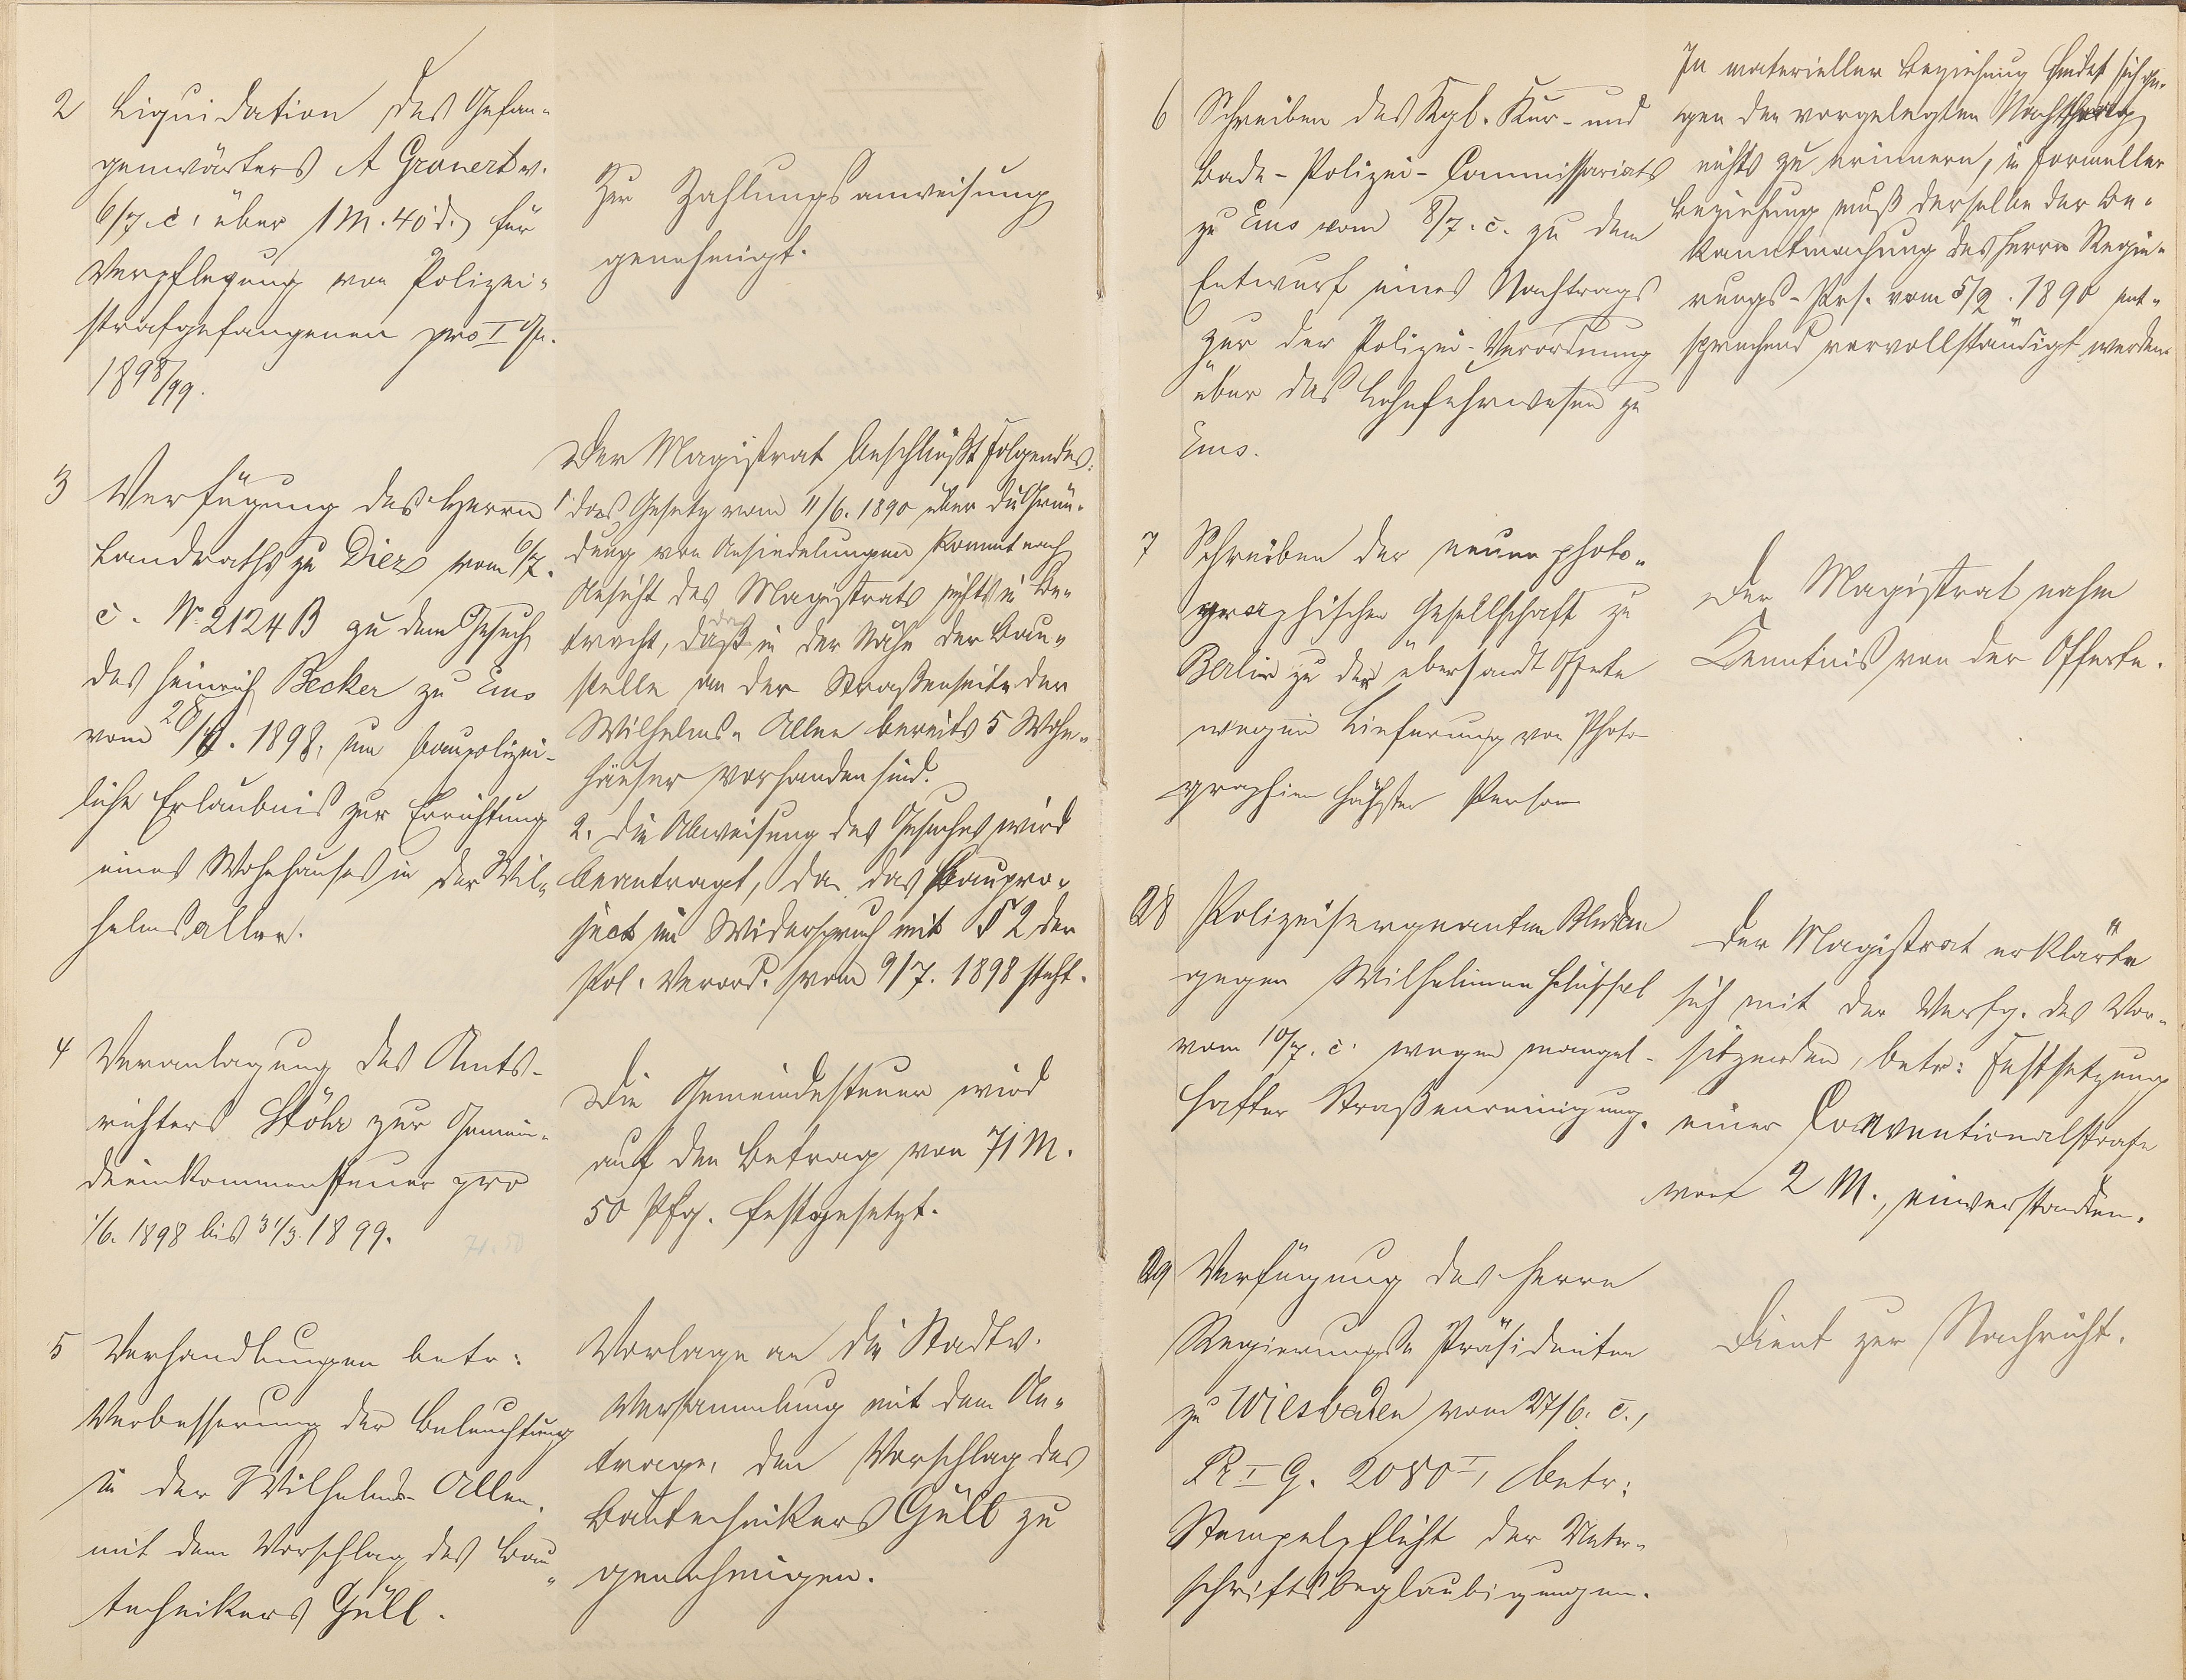 2 Liquidation des Gefan-
genwärters A Gronert v.
6/7. c. über 1 M. 40 d. für
Verpflegung von Polizei-
strafgefangenen pro I Qu.
1898/99.
Zur Zahlungsanweisung
genehmigt.
3 Verfügung des Herrn
Landraths zu Diez vom 6/7.
c. No 2124 B zu dem Gesuch
des Heinrich Becker zu Ems
vom 28/6. 1898, um baupolizei-
liche Erlaubniß zur Errichtung
eines Wohnhauses in der Wil-
helmsallee.
Der Magistrat beschließt Folgendes:
1. das Gesetz vom 11/6. 1890 über die Grün-
dung von Ansiedelungen kommt nach
Ansicht des Magistrats nicht in Be-
tracht, da in der Nähe der Bau-
stelle an der Straßenseite der
Wilhelms-Allee bereits 5 Wohn-
häuser vorhanden sind.
2. Die Abweisung des Gesuches wird
beantragt, da das Baupro-
ject im Widerspruch mit § 2 der
Pol. Verord. vom 9/7. 1898 steht.
4 Veranlagung des Amts-
richters Stöhr zur Gemein-
deeinkommensteuer pro
1/6. 1898 bis 31/3. 1899.
71.50
Die Gemeindesteuer wird
auf den Betrag von 71 M.
50 Pfg. festgesetzt.
5 Verhandlungen betr:
Verbesserung der Beleuchtung
in der Wilhelms-Allee.
mit dem Vorschlag des Bau-
technikers Güll.
Vorlage an die Stadtv.
Versammlung mit dem An-
trage, den Vorschlag des
Bautechnikers Güll zu
genehmigen.
6 Schreiben des Kgl. Kur- und
Bade-Polizei-Commissariats
zu Ems vom 8/7. c. zu dem
Entwurf eines Nachtrags
zur der Polizei-Verordnung
über das Lohnfuhrwesen zu
Ems.
In materieller Beziehung findet sich ge-
gen den vorgelegten Nachtrag
nichts zu erinnern, in formeller
Beziehung muß derselbe der Be-
kanntmachung des Herrn Regie-
rungs-Prs. vom 5/2. 1890 ent-
sprechend vervollständigt werden
7 Schreiben der neuen photo-
graphischen Gesellschaft zu
Berlin zu der übersandt Offerte
wegen Lieferung von Photo-
graphien höchster Person
Der Magistrat nahm
Kenntniß von der Offerte.
28 Polizeisergeanten
gegen Wilhelmine
vom 10/7. c. wegen mangel-
hafter Straßenreinigung.
Der Magistrat erklärte
sich mit der Verfg. des Vor-
sitzenden, betr: Festsetzung
einer Conventionalstrafe
von 2 M., einverstanden.
29 Verfügung des Herrn
Regierungs-Präsidenten
zu Wiesbaden vom 27/6. c.,
Pr I G. 2080 I, betr:
Stempelpflicht der Unter-
schriftsbeglaubigungen.
Dient zur Nachricht.